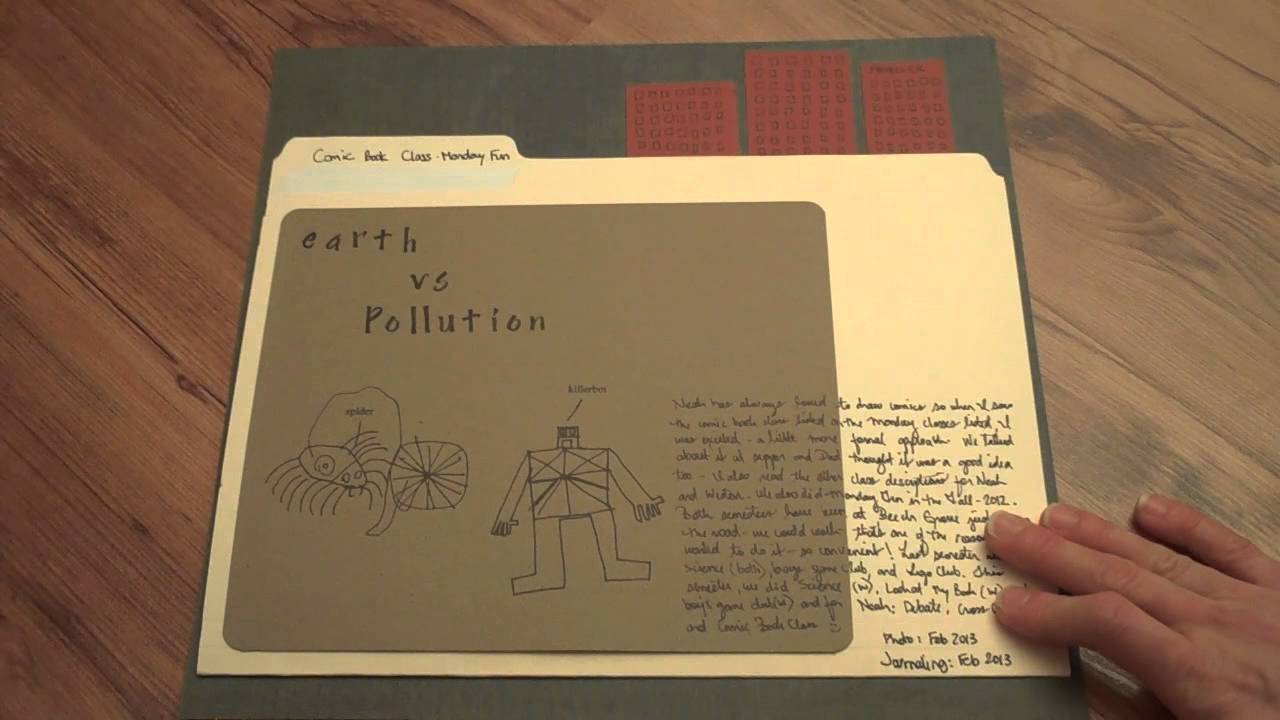 Comic Book Class - Monday Fun
earth
vs
Pollution
killerbot
spider
Neah has always loved to draw comics so when I saw
the comic book class listed on the Monday classes listed I
was excited - a little more formal approach. We talked
about it at supper and Dad thought it was a good idea
too - I also read the other class descriptions for Neah
and We also did Monday Fun in the Fall - 2012.
Both semesters have run at Beech Grove just
the road - we could walk - that's one of the reasons
wanted to do it - so convenient! Last semester we
Science (both), boys game club, and Lego Club. This
semester, we did Science (w), Look at My Book (w)
boys game club (w) and for Neah: Debate, Cross
and Comic Book Class
Photo: Feb 2013
Journaling: Feb 2013